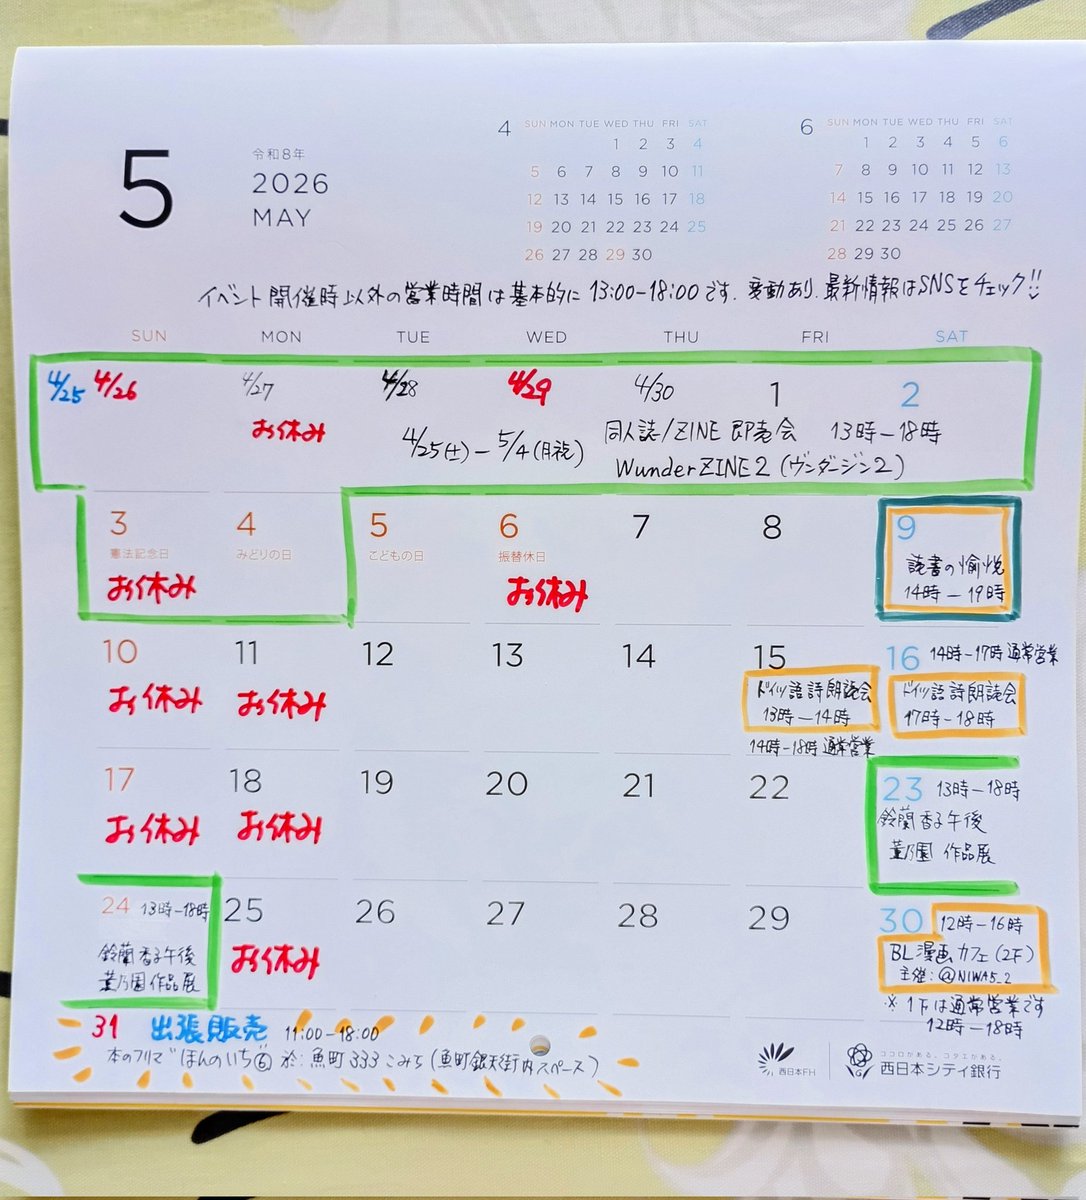 5
令和8年
2026
MAY
4
SUN MON TUE WED THU FRI SAT
1 2 3 4
5 6 7 8 9 10 11
12 13 14 15 16 17 18
19 20 21 22 23 24 25
26 27 28 29 30
6
SUN MON TUE WED THU FRI SAT
1 2 3 4 5 6
7 8 9 10 11 12 13
14 15 16 17 18 19 20
21 22 23 24 25 26 27
28 29 30
イベント開催時以外の営業時間は基本的に13:00-18:00です.変動あり.最新情報はSNSをチェック!!
SUN MON TUE WED THU FRI SAT
4/25 4/26 4/27 4/28 4/29 4/30 1 2
お休み
4/25(土)-5/4(月祝) 同人誌/ZINE 即売会 13時-18時
WunderZINE2(ヴンダージン2)
3 4 5 6 7 8 9
憲法記念日 みどりの日 こどもの日 振替休日
お休み お休み
読書の愉悦
14時-19時
10 11 12 13 14 15 16 14時-17時通常営業
お休み お休み
ドイツ語詩朗読会
13時-14時
14時-18時通常営業
ドイツ語詩朗読会
17時-18時
17 18 19 20 21 22 23 13時-18時
お休み お休み
鈴蘭香子午後
菫乃園 作品展
24 13時-18時 25 26 27 28 29 30 12時-16時
鈴蘭香子午後
菫乃園作品展
お休み
BL漫画カフェ(2F)
主催:@NIWA5_2
※1Fは通常営業です
12時-18時
31 出張販売 11:00-18:00
本のフリマ"ほんのいち⑥ 於:魚町333こみち(魚町銀天街内スペース)
西日本FH
ココロがある。コタエがある。
西日本シティ銀行